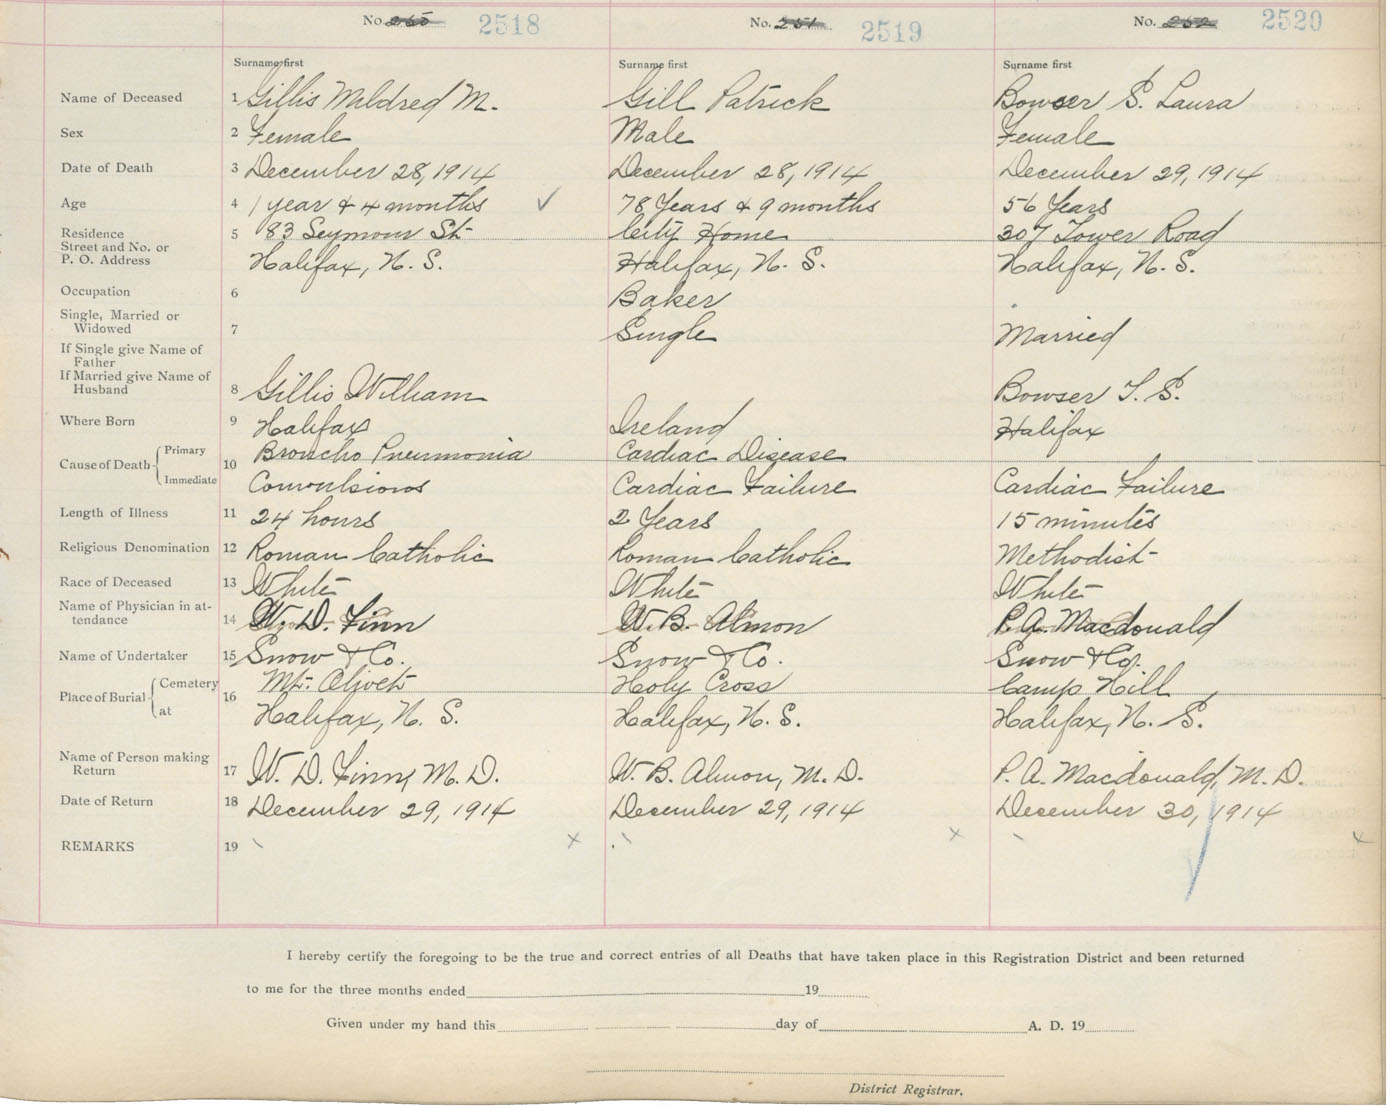 No. 2518 No. 251 2519 No. 252 2520
Surname first Surname first Surname first
Name of Deceased 1 Gillis Mildred M. Gill Patrick Bowser S. Laura
Sex 2 Female Male Female
Date of Death 3 December 28, 1914 December 28, 1914 December 29, 1914
Age 4 1 year & 4 months ✓ 78 Years & 9 months 56 Years
Residence 5 83 Seymour St City Home 307 Tower Road
Street and No. or
P. O. Address Halifax, N. S. Halifax, N. S. Halifax, N. S.
Occupation 6 Baker
Single, Married or
Widowed 7 Single Married
If Single give Name of
Father
If Married give Name of
Husband 8 Gillis William Bowser T. S.
Where Born 9 Halifax Ireland Halifax
Cause of Death Primary 10 Broncho Pneumonia Cardiac Disease
Immediate Convulsions Cardiac Failure Cardiac Failure
Length of Illness 11 24 hours 2 Years 15 minutes
Religious Denomination 12 Roman Catholic Roman Catholic Methodist
Race of Deceased 13 White White White
Name of Physician in at-
tendance 14 W. D. Finn W. B. Almon P. A. Macdonald
Name of Undertaker 15 Snow & Co. Snow & Co. Snow & Co.
Place of Burial Cemetery 16 Mt. Olivet Holy Cross Camp Hill
at Halifax, N. S. Halifax, N. S. Halifax, N. S.
Name of Person making
Return 17 W. D. Finn, M. D. W. B. Almon, M. D. P. A. Macdonald, M. D.
Date of Return 18 December 29, 1914 December 29, 1914 December 30, 1914
REMARKS 19 x x x
I hereby certify the foregoing to be the true and correct entries of all Deaths that have taken place in this Registration District and been returned
to me for the three months ended 19
Given under my hand this day of A. D. 19
District Registrar.